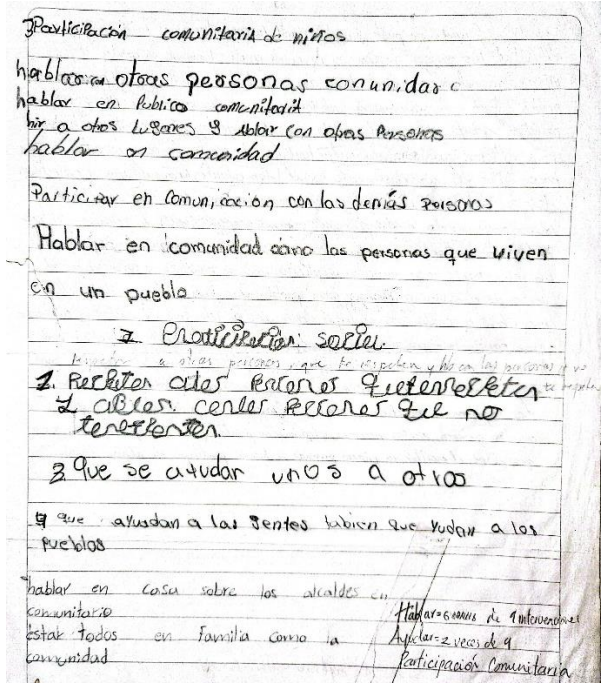 3 Participación comunitaria de niños
hablar a otras personas conunidad
hablar en Publico comunitadit
hir a otros Lugones y ablar con otras Personas
hablar en comonidad
Participar en Comunicacion con las demás personas
Hablar en comunidad como las personas que viven
en un pueblo
a otras personas que te respeten y
1. a los
2 ablar que no
3 que se ayudar unos a otros
4 que ayusdan a las gentes tabien que yudan a los
pueblos
hablar en casa sobre los alcaldes en
comunitario
Estar todos en familia como la
comunidad
Hablar= 6 de 9 intervenciones
Ayudar= 2 veces de 9
Participación Comunitaria